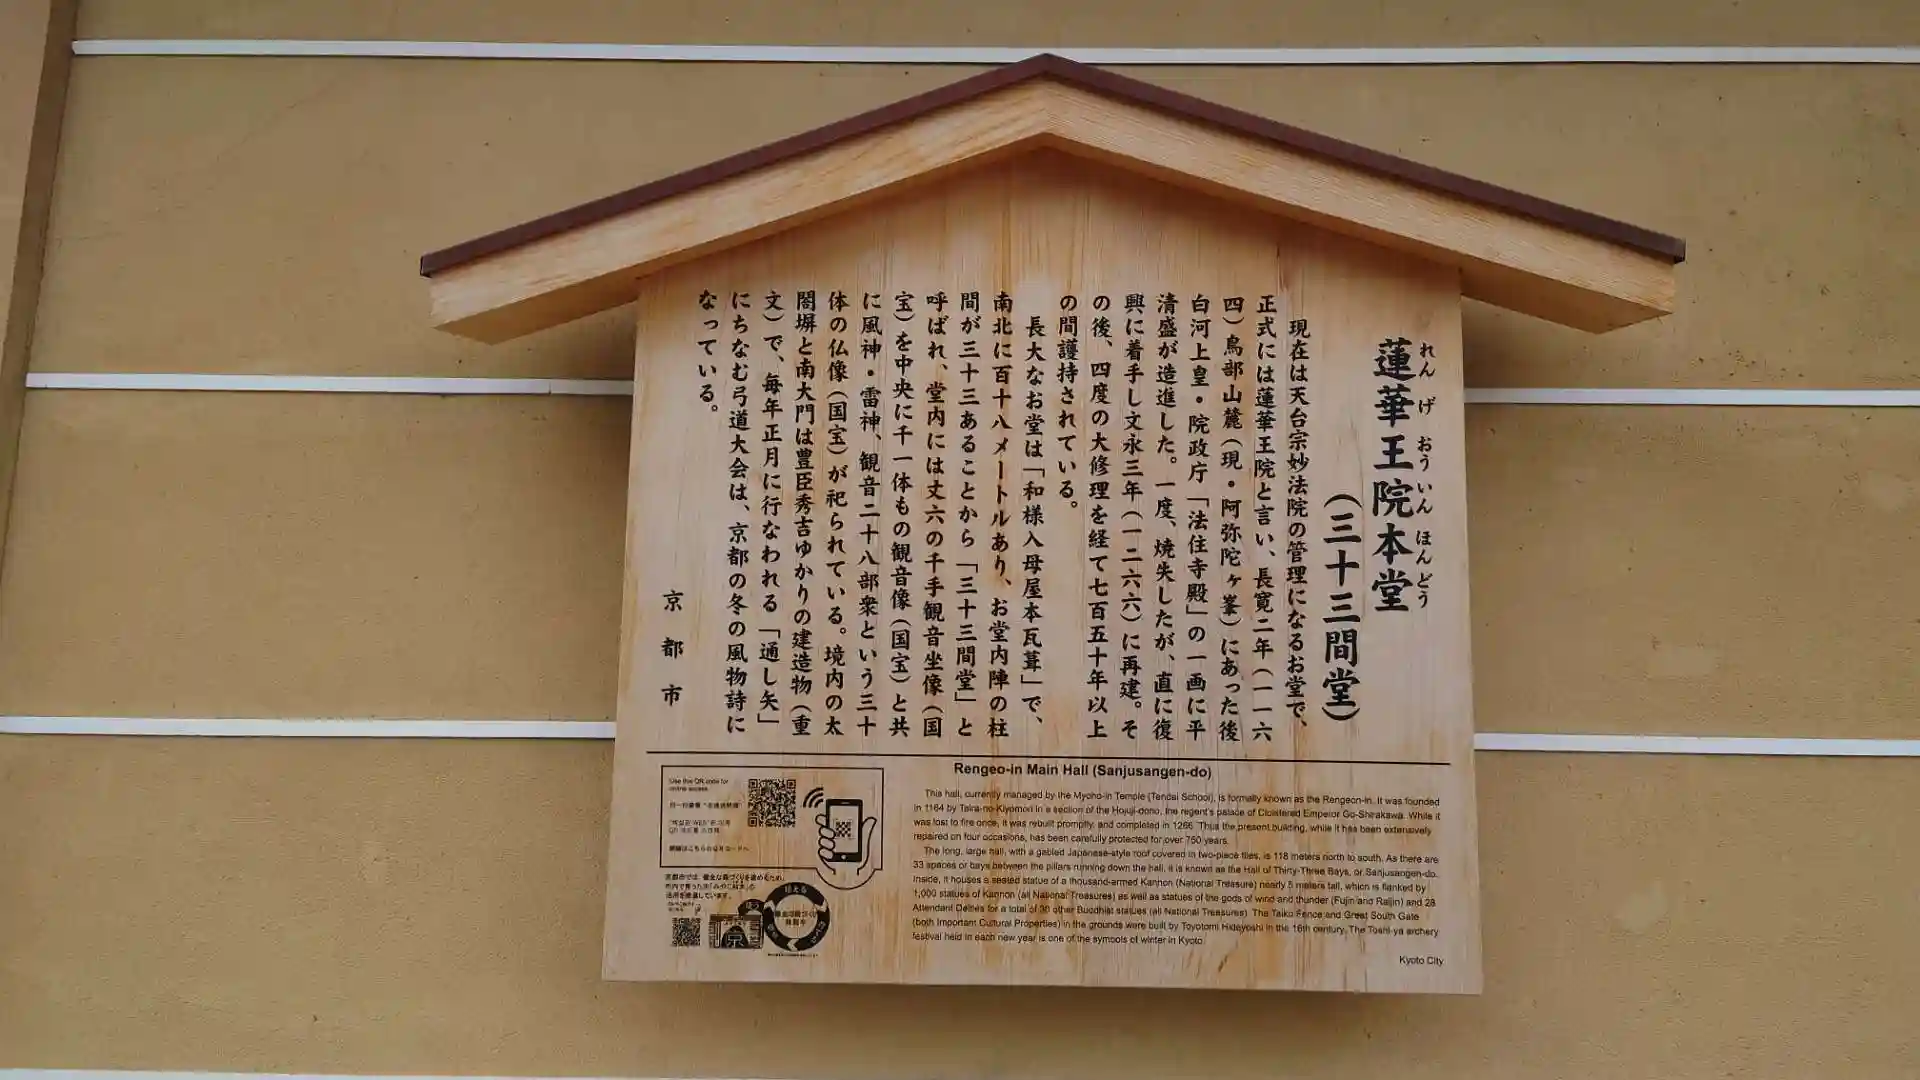 蓮華王院本堂
れん げ おう いん ほん どう
（三十三間堂）
現在は天台宗妙法院の管理になるお堂で、
正式には蓮華王院と言い、長寛二年（一一六
四）鳥部山麓（現・阿弥陀ヶ峯）にあった後
白河上皇・院政庁「法住寺殿」の一画に平
清盛が造進した。一度、焼失したが、直に復
興に着手し文永三年（一二六六）に再建。そ
の後、四度の大修理を経て七百五十年以上
の間護持されている。
長大なお堂は「和様入母屋本瓦葺」で、
南北に百十八メートルあり、お堂内陣の柱
間が三十三あることから「三十三間堂」と
呼ばれ、堂内には丈六の千手観音坐像（国
宝）を中央に千一体もの観音像（国宝）と共
に風神・雷神、観音二十八部衆という三十
体の仏像（国宝）が祀られている。境内の太
閤塀と南大門は豊臣秀吉ゆかりの建造物（重
文）で、毎年正月に行なわれる「通し矢」
にちなむ弓道大会は、京都の冬の風物詩に
なっている。
京都市
Rengeo-in Main Hall (Sanjusangen-do)
This hall, currently managed by the Myoho-in Temple (Tendai School), is formally known as the Rengeon-in. It was founded
in 1164 by Taira-no-Kiyomori in a section of the Hojuji-dono, the regent's palace of Cloistered Emperor Go-Shirakawa. While it
was lost to fire once, it was rebuilt promptly, and completed in 1266. Thus the present building, while it has been extensively
repaired on four occasions, has been carefully protected for over 750 years.
The long, large hall, with a gabled Japanese-style roof covered in two-piece tiles, is 118 meters north to south. As there are
33 spaces or bays between the pillars running down the hall, it is known as the Hall of Thirty-Three Bays, or Sanjusangen-do.
Inside, it houses a seated statue of a thousand-armed Kannon (National Treasure) nearly 5 meters tall, which is flanked by
1,000 statues of Kannon (all National Treasures) as well as statues of the gods of wind and thunder (Fujin and Raijin) and 28
Attendant Deities for a total of 30 other Buddhist statues (all National Treasures). The Taiko Fence and Great South Gate
(both Important Cultural Properties) in the grounds were built by Toyotomi Hideyoshi in the 16th century. The Toshi-ya archery
festival held in each new year is one of the symbols of winter in Kyoto.
Kyoto City
Use the QR code for
online access.
詳細はこちらのQRコードへ